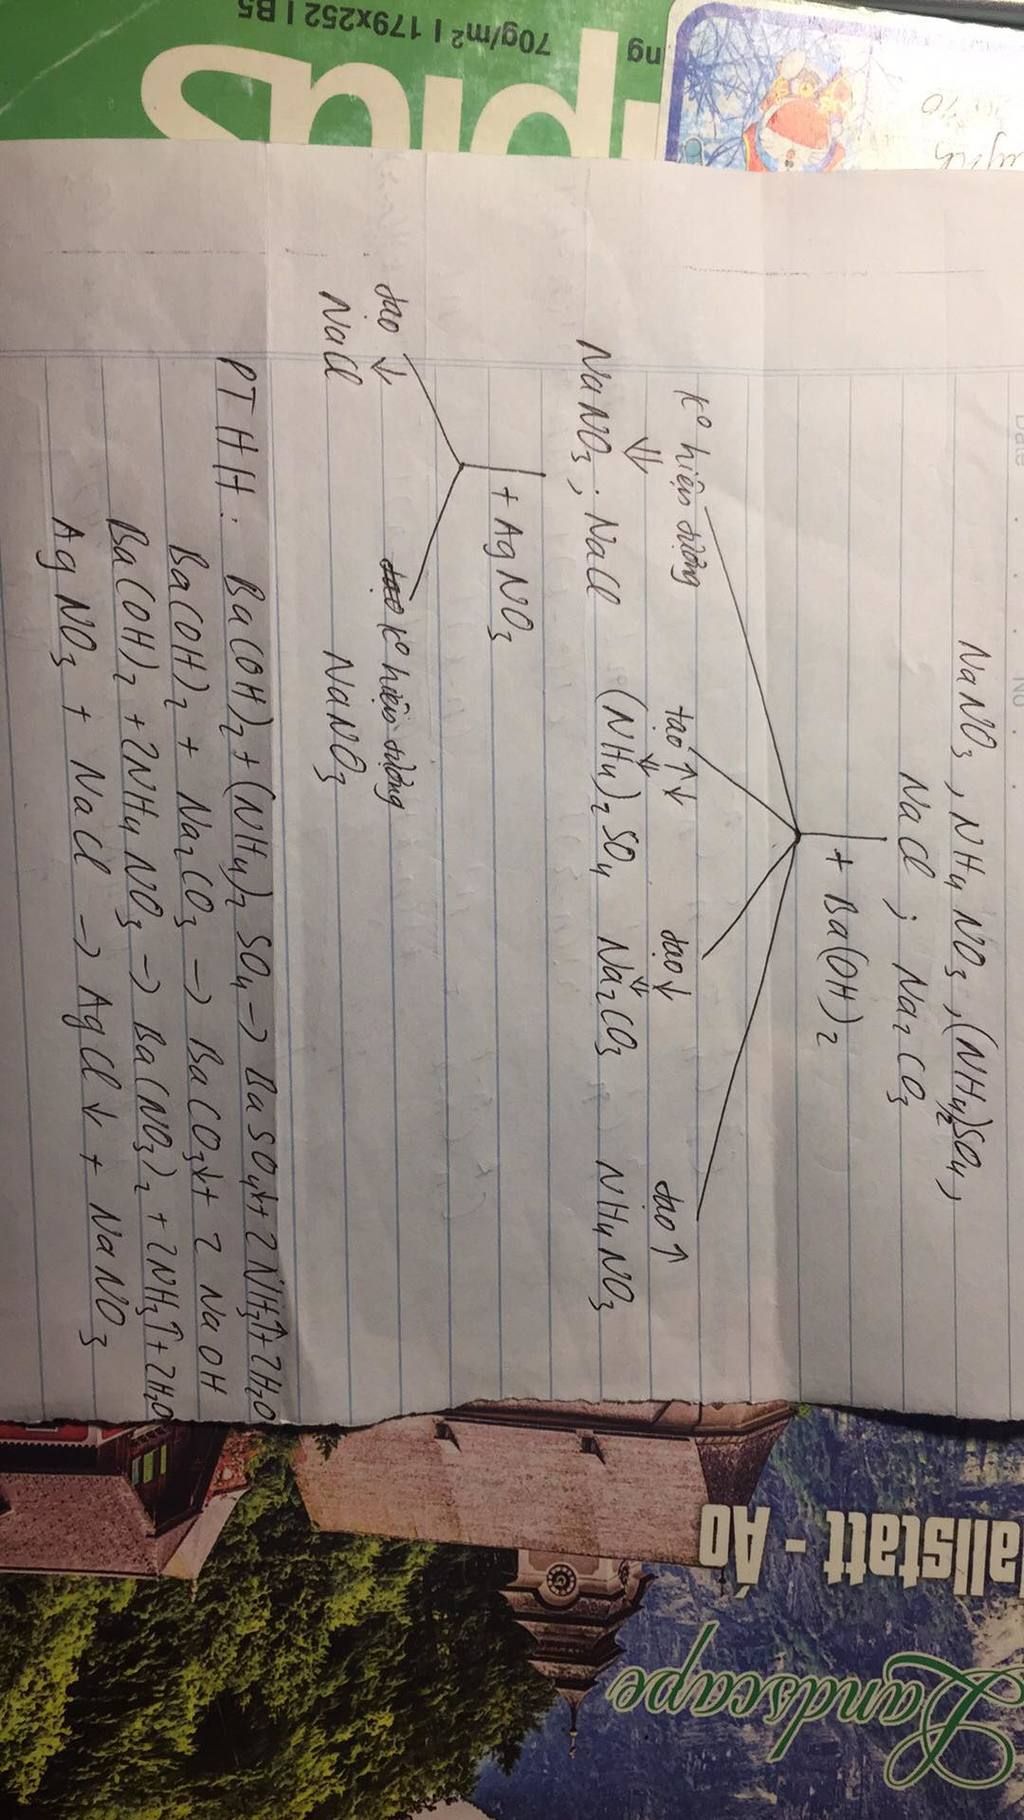 NaNO3, NH4NO3, (NH4)2SO4,
NaCl; Na2CO3
+ Ba(OH)2
K° hiện tượng tạo ↑↓ tạo ↓ tạo ↑
NaNO3; NaCl (NH4)2SO4 Na2CO3 NH4NO3
+ AgNO3
tạo ↓ K° hiện tượng
NaCl NaNO3
PTHH: Ba(OH)2 + (NH4)2SO4 -> BaSO4↓ + 2NH3↑ + 2H2O
Ba(OH)2 + Na2CO3 -> BaCO3↓ + 2NaOH
Ba(OH)2 + 2NH4NO3 -> Ba(NO3)2 + 2NH3↑ + 2H2O
AgNO3 + NaCl -> AgCl↓ + NaNO3
Date
No
plus
ng 70g/m² | 179x252 | B5
allstatt - Áo
Landscape